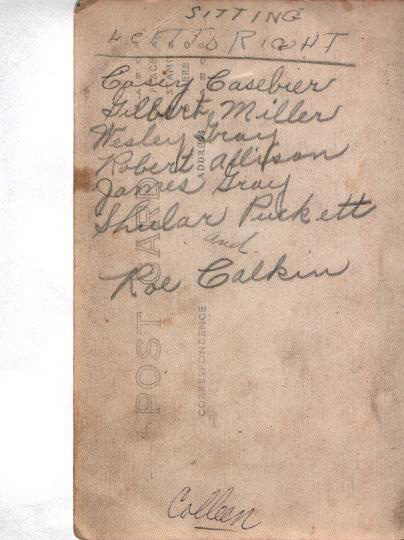 SITTING
LEFT TO RIGHT
Casey Casebier
Gilbert Miller
Wesley Gray
Robert Allison
James Gray
Shular Puckett
and
Roe Calkin
POST CARD
CORRESPONDENCE
ADDRESS
PLACE
STAMP
HERE
Colleen